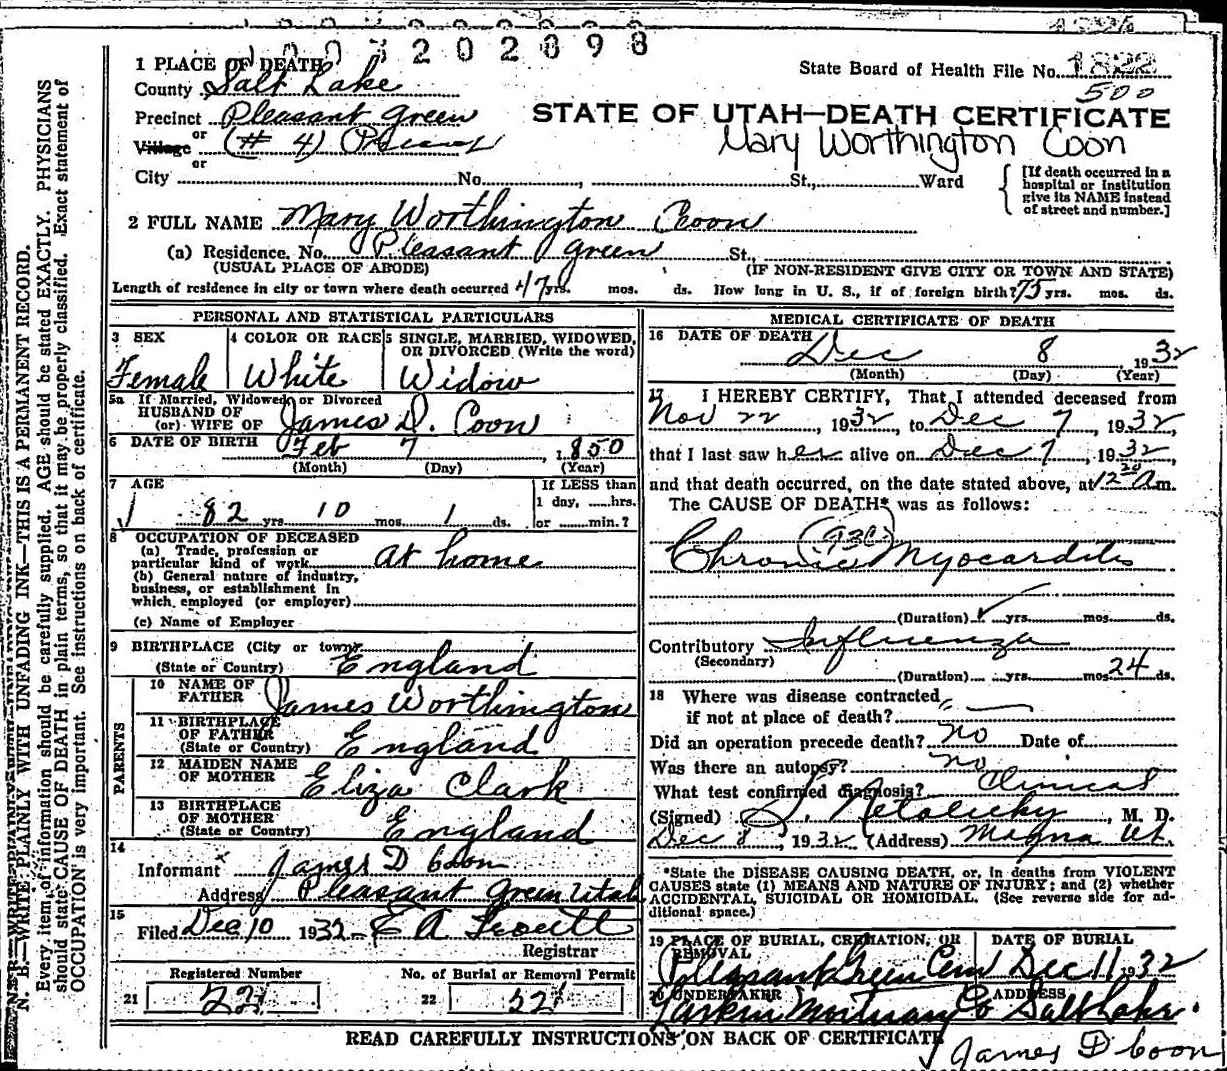 1003202098
1 PLACE OF DEATH
County Salt Lake
State Board of Health File No. 1822
500
Precinct Pleasant Green
STATE OF UTAH—DEATH CERTIFICATE
or
Village (# 4)
Mary Worthington Coon
or
City No. , St., Ward
[If death occurred in a hospital or institution give its NAME instead of street and number.]
2 FULL NAME Mary Worthington Coon
(a) Residence. No. Pleasant Green St.,
(USUAL PLACE OF ABODE) (IF NON-RESIDENT GIVE CITY OR TOWN AND STATE)
Length of residence in city or town where death occurred 47 yrs. mos. ds. How long in U. S., if of foreign birth? 75 yrs. mos. ds.
PERSONAL AND STATISTICAL PARTICULARS
3 SEX 4 COLOR OR RACE 5 SINGLE, MARRIED, WIDOWED, OR DIVORCED (Write the word)
Female White Widow
5a If Married, Widowed, or Divorced
HUSBAND OF
(or) WIFE OF James D. Coon
6 DATE OF BIRTH Feb 7, 1850
(Month) (Day) (Year)
7 AGE If LESS than
1 day, hrs.
82 yrs. 10 mos. 1 ds. or min.?
8 OCCUPATION OF DECEASED
(a) Trade, profession or
particular kind of work At home
(b) General nature of industry,
business, or establishment in
which employed (or employer)
(c) Name of Employer
9 BIRTHPLACE (City or town)
(State or Country) England
PARENTS
10 NAME OF
FATHER James Worthington
11 BIRTHPLACE
OF FATHER
(State or Country) England
12 MAIDEN NAME
OF MOTHER Eliza Clark
13 BIRTHPLACE
OF MOTHER
(State or Country) England
14
Informant James D Coon
Address Pleasant Green Utah
15
Filed Dec 10 1932 E A
Registrar
Registered Number No. of Burial or Removal Permit
21 221 22 221
MEDICAL CERTIFICATE OF DEATH
16 DATE OF DEATH
Dec 8 1932
(Month) (Day) (Year)
17 I HEREBY CERTIFY, That I attended deceased from
Nov 22, 1932, to Dec 7, 1932,
that I last saw her alive on Dec 7, 1932,
and that death occurred, on the date stated above, at 12 20 A m.
The CAUSE OF DEATH* was as follows:
(93c)
Chronic Myocarditis
(Duration) yrs. mos. ds.
Contributory Influenza
(Secondary)
(Duration) yrs. mos. 24 ds.
18 Where was disease contracted
if not at place of death?
Did an operation precede death? no Date of
Was there an autopsy? no
What test confirmed diagnosis? Clinical
(Signed) , M. D.
Dec 8, 1932 (Address) Magna Ut.
*State the DISEASE CAUSING DEATH, or, in deaths from VIOLENT
CAUSES state (1) MEANS AND NATURE OF INJURY; and (2) whether
ACCIDENTAL, SUICIDAL OR HOMICIDAL. (See reverse side for ad-
ditional space.)
19 PLACE OF BURIAL, CREMATION, OR REMOVAL DATE OF BURIAL
Pleasant Green Cem Dec 11, 1932
20 UNDERTAKER ADDRESS
Larkin Mortuary Co Salt Lake.
READ CAREFULLY INSTRUCTIONS ON BACK OF CERTIFICATE
James D Coon
N. B.—WRITE PLAINLY WITH UNFADING INK—THIS IS A PERMANENT RECORD.
Every item of information should be carefully supplied. AGE should be stated EXACTLY. PHYSICIANS
should state CAUSE OF DEATH in plain terms, so that it may be properly classified. Exact statement of
OCCUPATION is very important. See instructions on back of certificate.